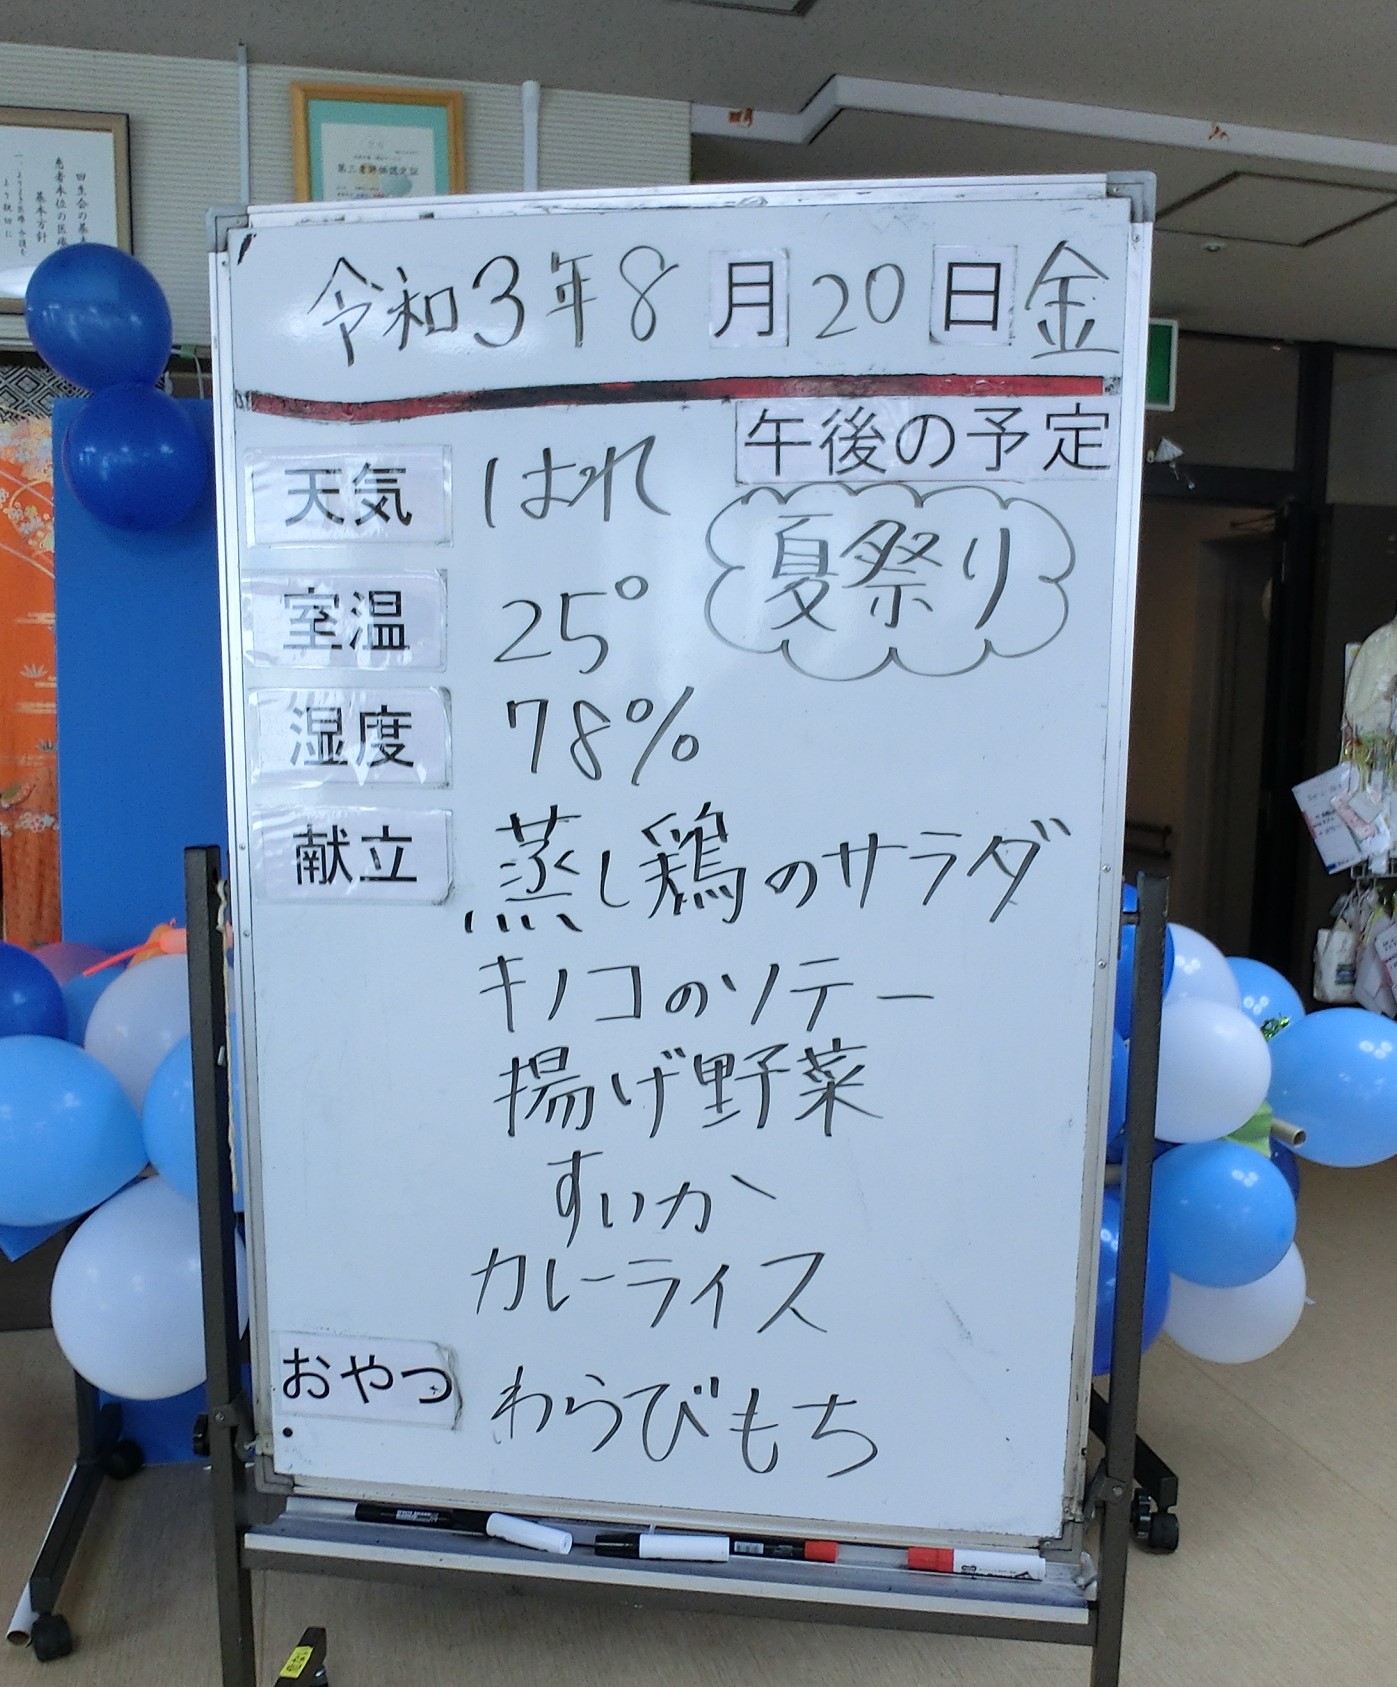 令和3年8月20日金
午後の予定
夏祭り
天気 はれ
室温 25°
湿度 78%
献立 蒸し鶏のサラダ
キノコのソテー
揚げ野菜
すいか
カレーライス
おやつ わらびもち
第三者評価認定証
基本方針